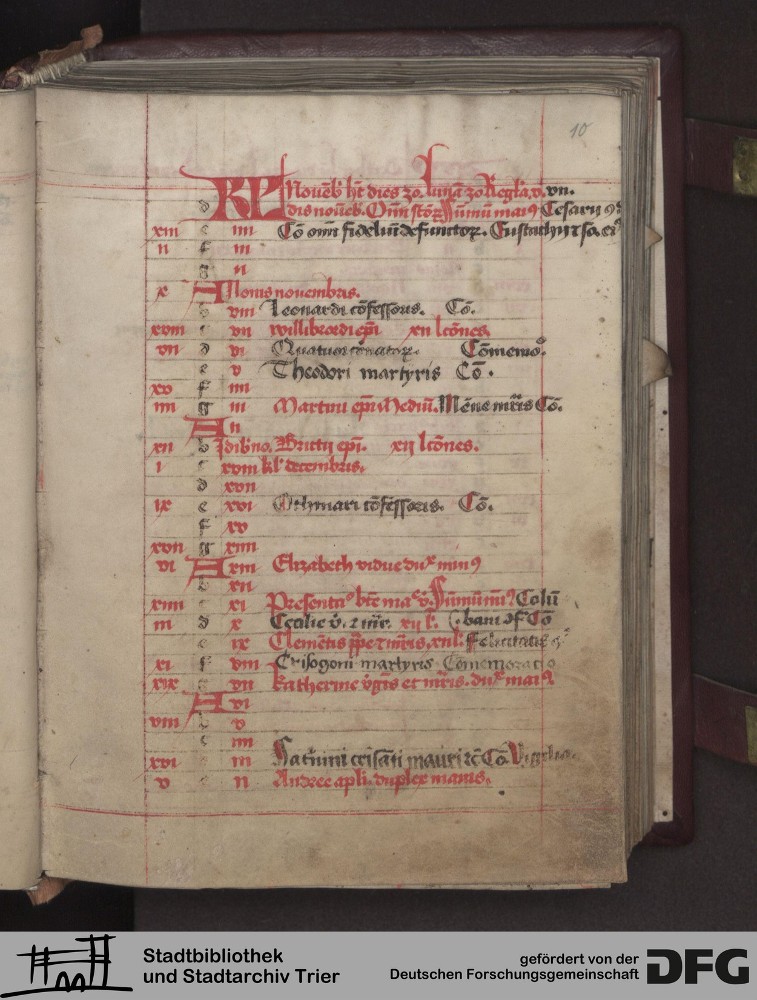 10
KL Novēb' ht dies 30. luna 30 Regl'a. v. vn.
d dis novēb. Om̄ sctōꝝ Sūmū maiꝰ Cesarii
xiii e iiii Cō om̄ fidelīū defunctoꝝ. Eustachii
ii f iii
g ii
x A Nonis novembris.
b viii Leonardi cōfessoris. Cō.
xviii c vii willibrordi ep̄i xii lcōnes.
vii d vi Quatuor coronatoꝝ. Cōmemo.
e v Theodori martyris Cō.
xv f iiii
iiii g iii Martini ep̄i Mēne mr̄is Cō.
A ii
xii b Idibꝰ no. Brictii ep̄i. xii lcōnes.
i c xviii kl' decembris.
d xvii
ix e xvi Othmari cōfessoris. Cō.
f xv
xvii g xiiii
vi A xiii Elizabeth vidue du^x minꝰ
b xii
xiiii c xi Presentaꝰ bte ma^e v. Sūmū Colū
iii d x Cecilie v. xii l. Cō
e ix Clemētis pp̄e mr̄is, xii l. Felicitatis
xi f viii Crisogoni martyris Comemoracio
xix g vii Katherine v'gīs et mr̄is. du^x maiꝰ.
A vi
viii b v
c iiii
xvi d iii Sat'nini crisāti mauri Cō Vigilia.
v e ii Andree apl'i. duplex maius.
Stadtbibliothek
und Stadtarchiv Trier
gefördert von der
Deutschen Forschungsgemeinschaft
DFG